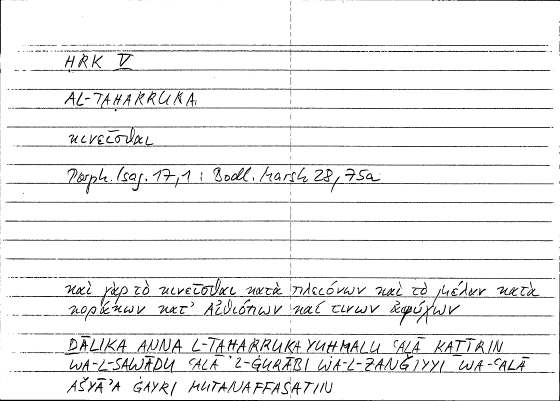 ḤRK V
AL-TAḤARRUKA
κινεῖσθαι
Porph. Isag. 17,1 : Bodl. Marsh 28, 75a
καὶ γὰρ τὸ κινεῖσθαι κατὰ πλειόνων καὶ τὸ μέλαν κατὰ
κοράκων κατ' Αἰθιόπων καί τινων ἀψύχων
ḎĀLIKA ANNA L-TAḤARRUKA YUḤMALU ʿALĀ KAṮĪRIN
WA-L-SAWĀDU ʿALĀ 'L-ĠURĀBI WA-L-ZANǦIYYI WA-ʿALĀ
AŠYĀ'A ĠAYRI MUTANAFFASATIN